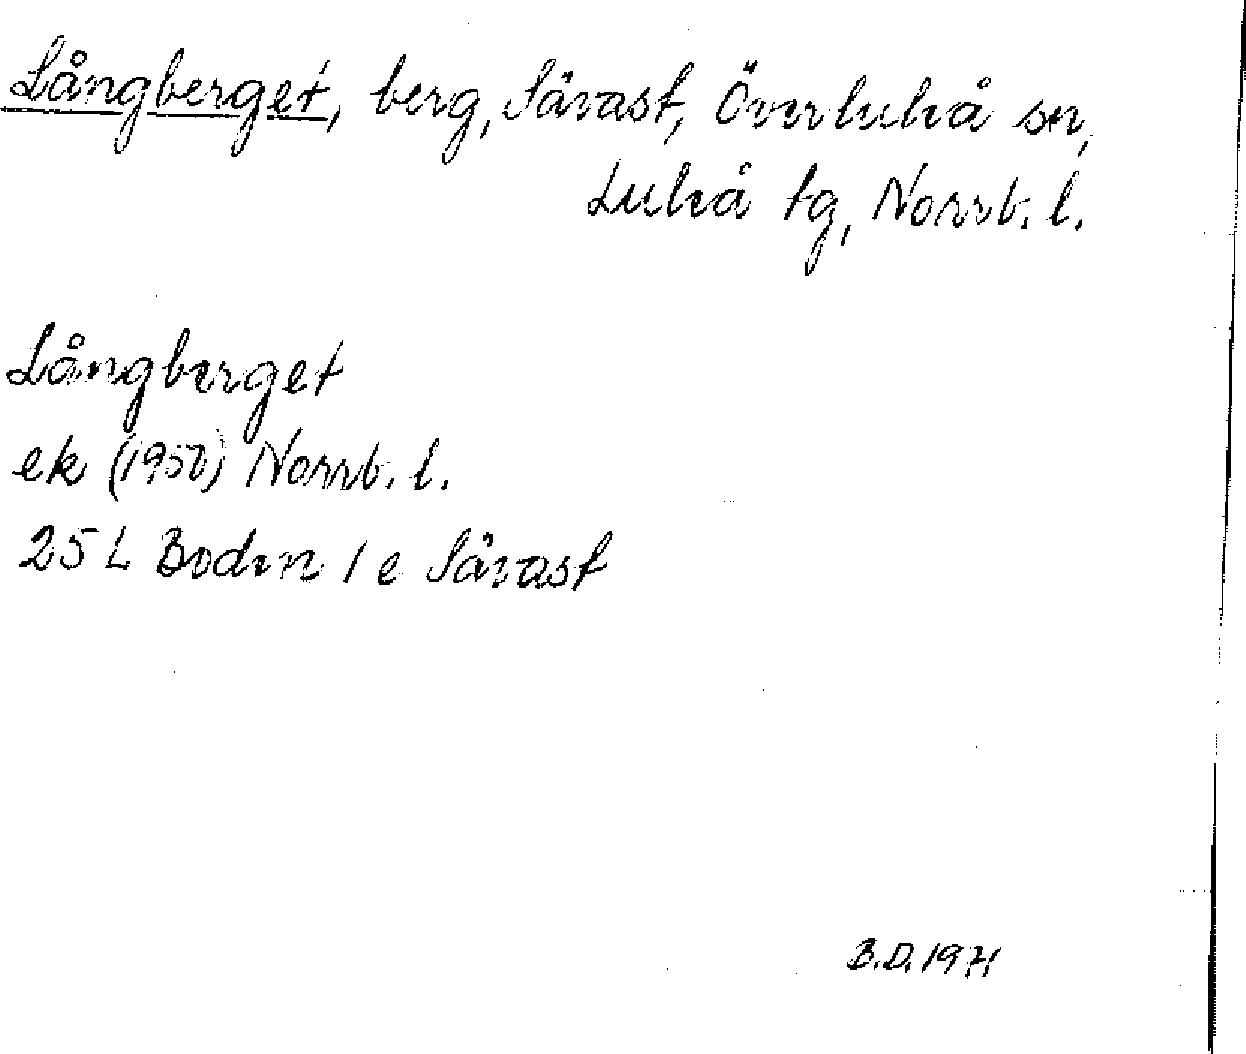 Långberget, berg, Sävast, Överluleå sn,
Luleå tg, Norrb. l.
Långberget
ek (1950) Norrb. l.
25 L Boden 1 e Sävast
B.D. 1971